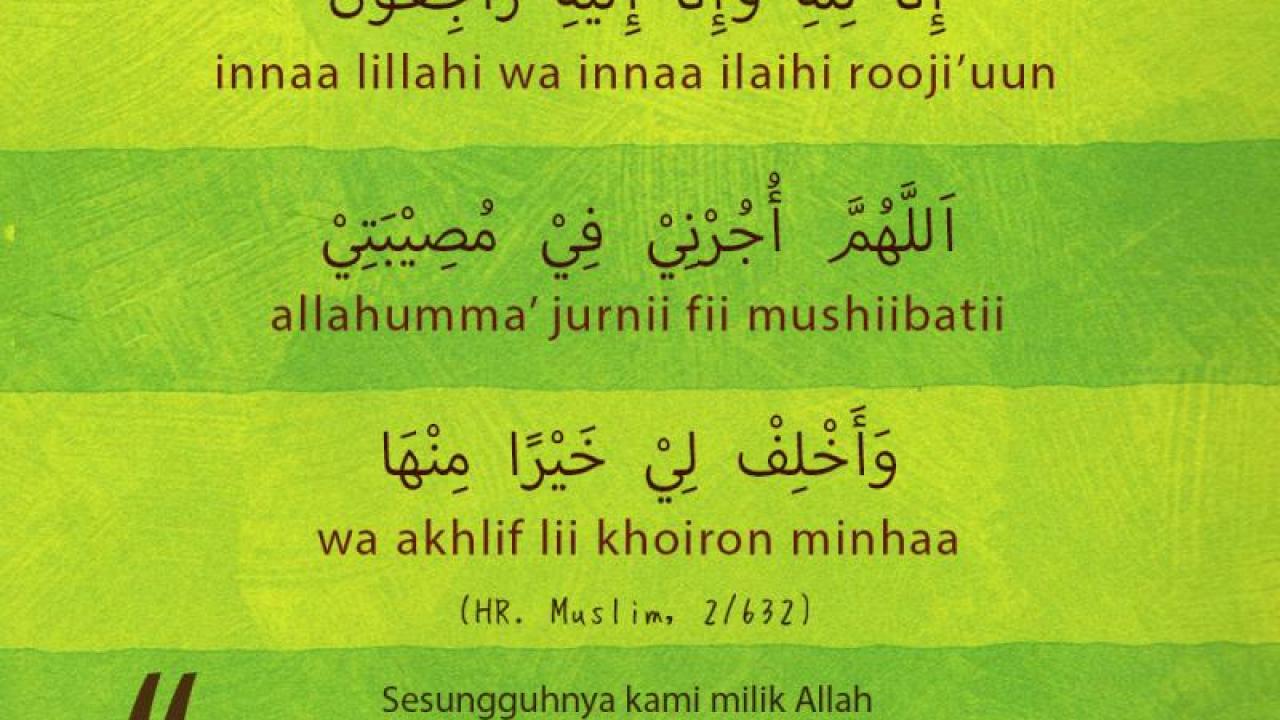 إِنَّا لِلَّهِ وَإِنَّا إِلَيْهِ رَاجِعُوْنَ
innaa lillahi wa innaa ilaihi rooji’uun
اَللَّهُمَّ أُجُرْنِيْ فِيْ مُصِيْبَتِيْ
allahumma’ jurnii fii mushiibatii
وَأَخْلِفْ لِيْ خَيْرًا مِنْهَا
wa akhlif lii khoiron minhaa
(HR. Muslim, 2/632)
Sesungguhnya kami milik Allah